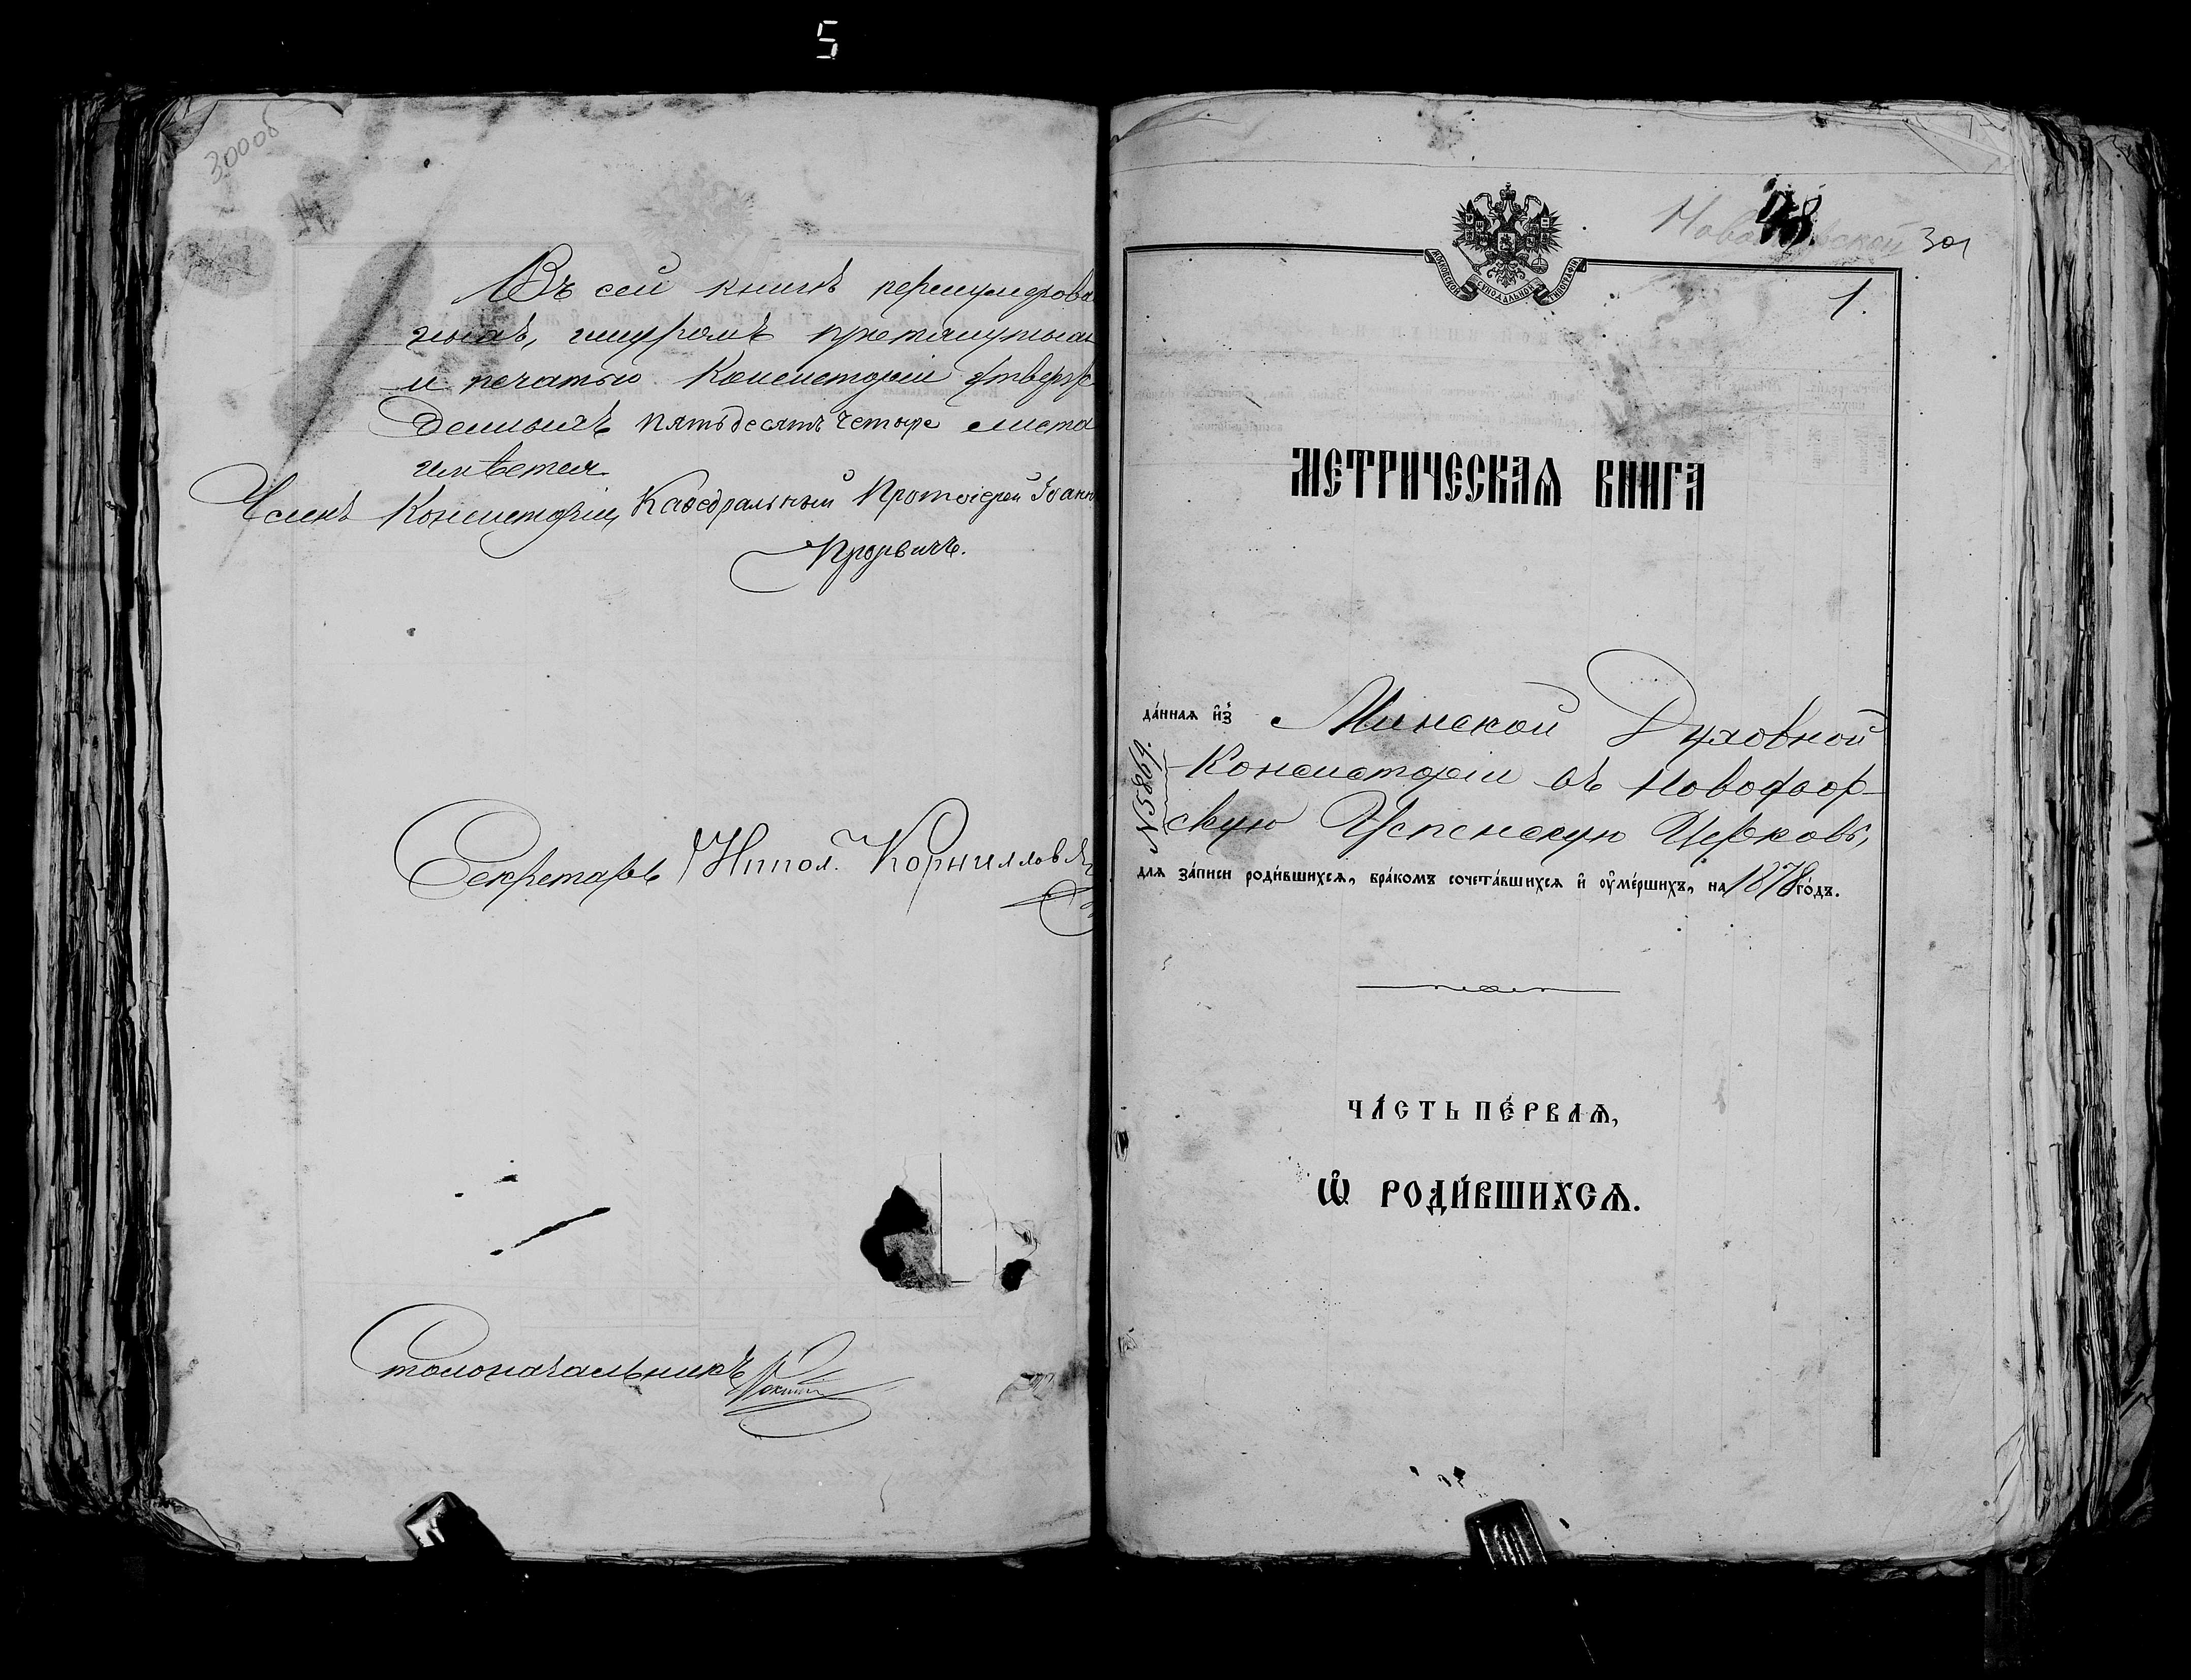 5
300об
Въ сей книгѣ перенумерова
ныхъ, шнуромъ претянутыхъ
и печатью Консисторіи утверж
денныхъ пятьдесятъ четыре листа
имѣется.
Членъ Консисторіи, Каѳедральный Протоіерей Іоанн
Секретарь Иппол. Корнилов
Столоначальникъ
301
1.
МОСКОВСКОЙ СѴНОДАЛЬНОЙ ТИПОГРАФІИ
МЕТРИЧЕСКАѦ КНИГА
да́ннаѧ и҆з̾ Минской Духовной
Консисторіи въ Новодвор-
скую Успенскую Церковь,
№ 5869.
длѧ за́писи роди́вшихсѧ, бра́комъ сочета́вшихсѧ и҆ ᲂу҆ме́ршихъ, на 1878 го́дъ.
ЧА́СТЬ ПЕ́РВАѦ,
Ѽ РОДИ́ВШИХСѦ.